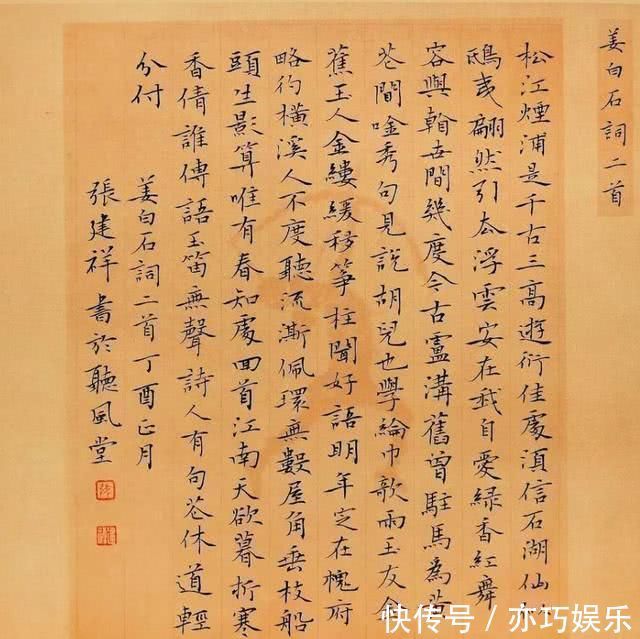 姜白石詞二首
松江煙浦是千古三高遊衍佳處湏信石湖仙
鴟夷翩然引去浮雲安在我自愛綠香紅舞
容與世間幾度今古盧溝舊曾駐馬為
花間唫秀句見說胡兒也學綸巾欹雨玉友金
蕉玉人金縷緩移箏柱聞好語明年定在槐府
略彴橫溪人不度聽流澌佩環無數屋角垂枝船
頭生影算唯有春知處回首江南天欲暮折寒
香倩誰傳語玉笛無聲詩人有句花休道輕
分付
姜白石詞二首丁酉正月
張建祥書於聽風堂
快传号 / 亦巧娱乐